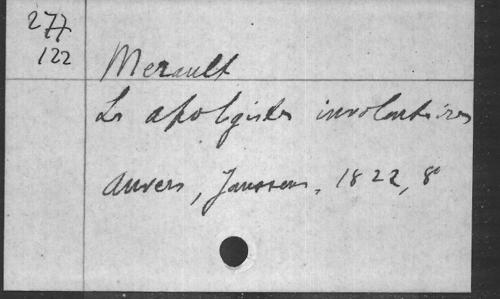 277
122
Merault
Les apologistes involontaires
Anvers, Janssens, 1822, 8°